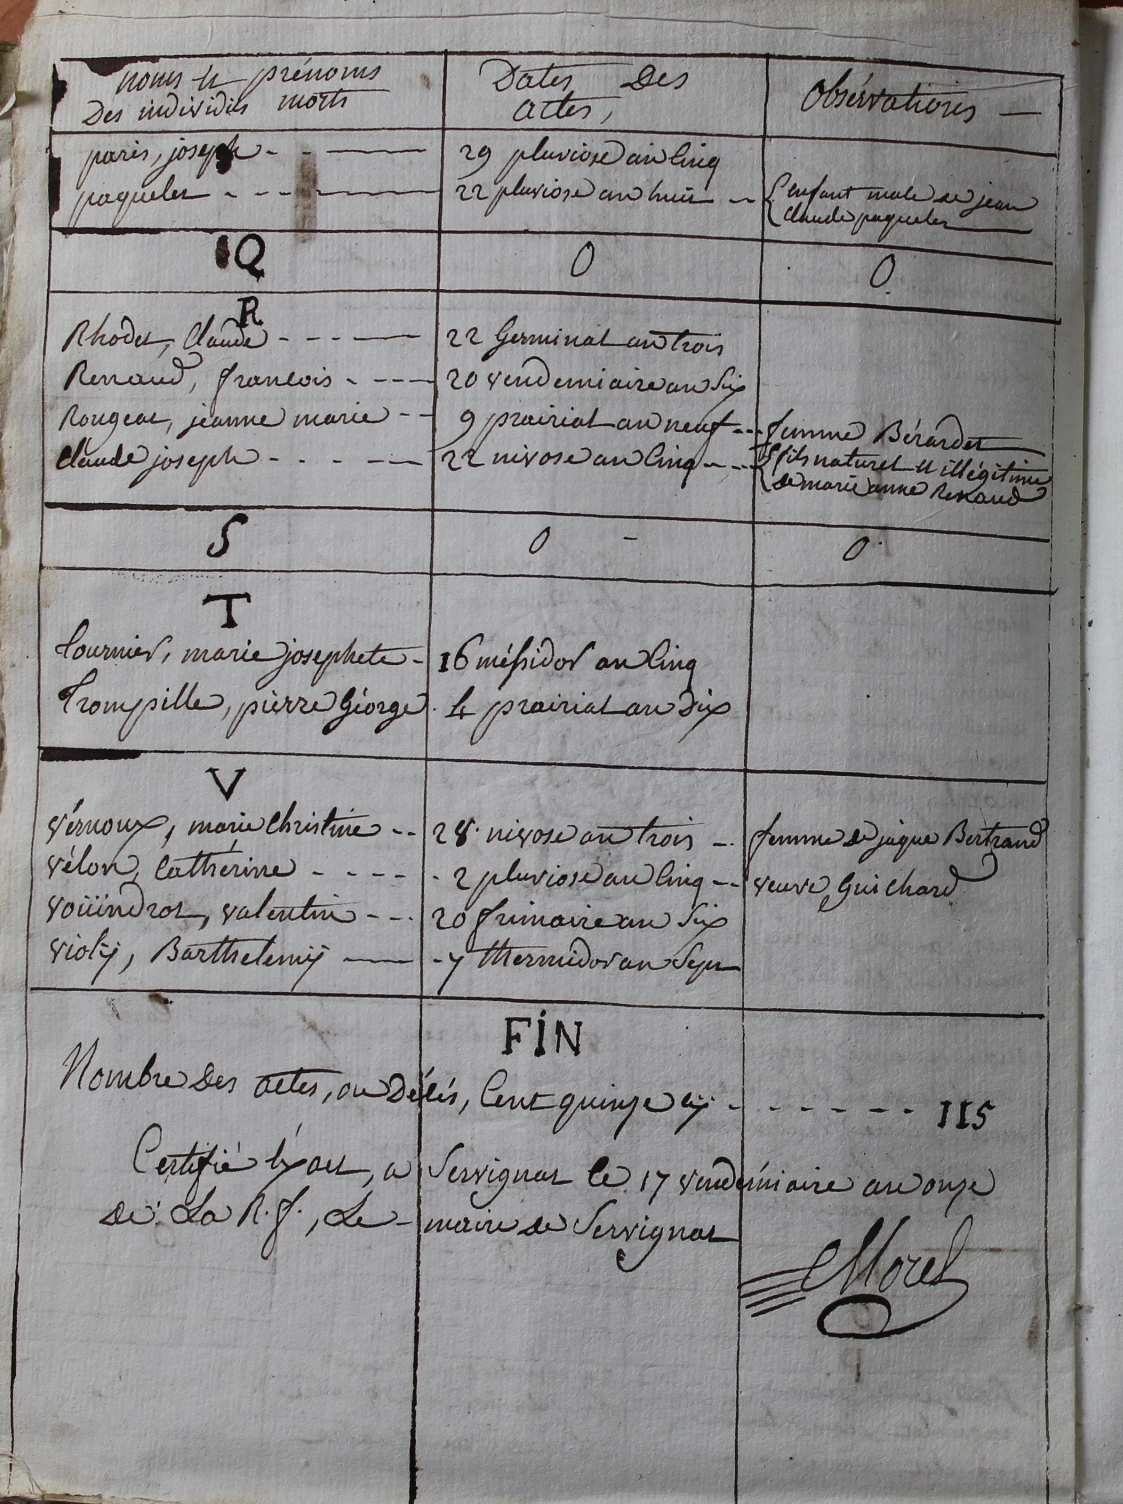 noms et prénoms Des individus morts
Dates Des actes,
Observations
paris, joseph 29 pluviose an Cinq
paquelet 22 pluviose an huit enfant male de jean
Claude paquelet
Q 0 0
R
Rhodet, Claude 22 Germinal an trois
Renaud, francois 20 vendemiaire an Six
Rougeat, jeanne marie 9 prairial an neuf femme Bérardet
Claude joseph 22 nivose an Cinq fils naturel et illégitime
de marie anne Renaud
S 0 0
T
tournier, marie josephete 16 méssidor an Cinq
Trompille, pierre Géorge 4 prairial an dix
V
Vérnoux, marie Christine 28 nivose an trois femme de jaque Bertrand
Vélon, Cathérine 2 pluviose an Cinq veuve Guichard
Voüindrot, valentin 20 frimaire an Six
Violÿ, Barthelemÿ 7 thermidor an Sept
FIN
Nombre Des actes, ou Décés, Cent quinze cy 115
Certifié éxact, a Servignat le 17 vendémiaire an onze
de La R. f., Le maire de Servignat
Morel